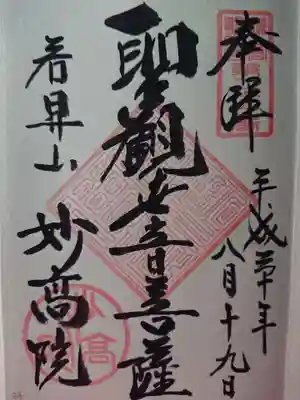 奉拝
平成三十年
八月十九日
聖觀世音菩薩
若昇山
妙高院